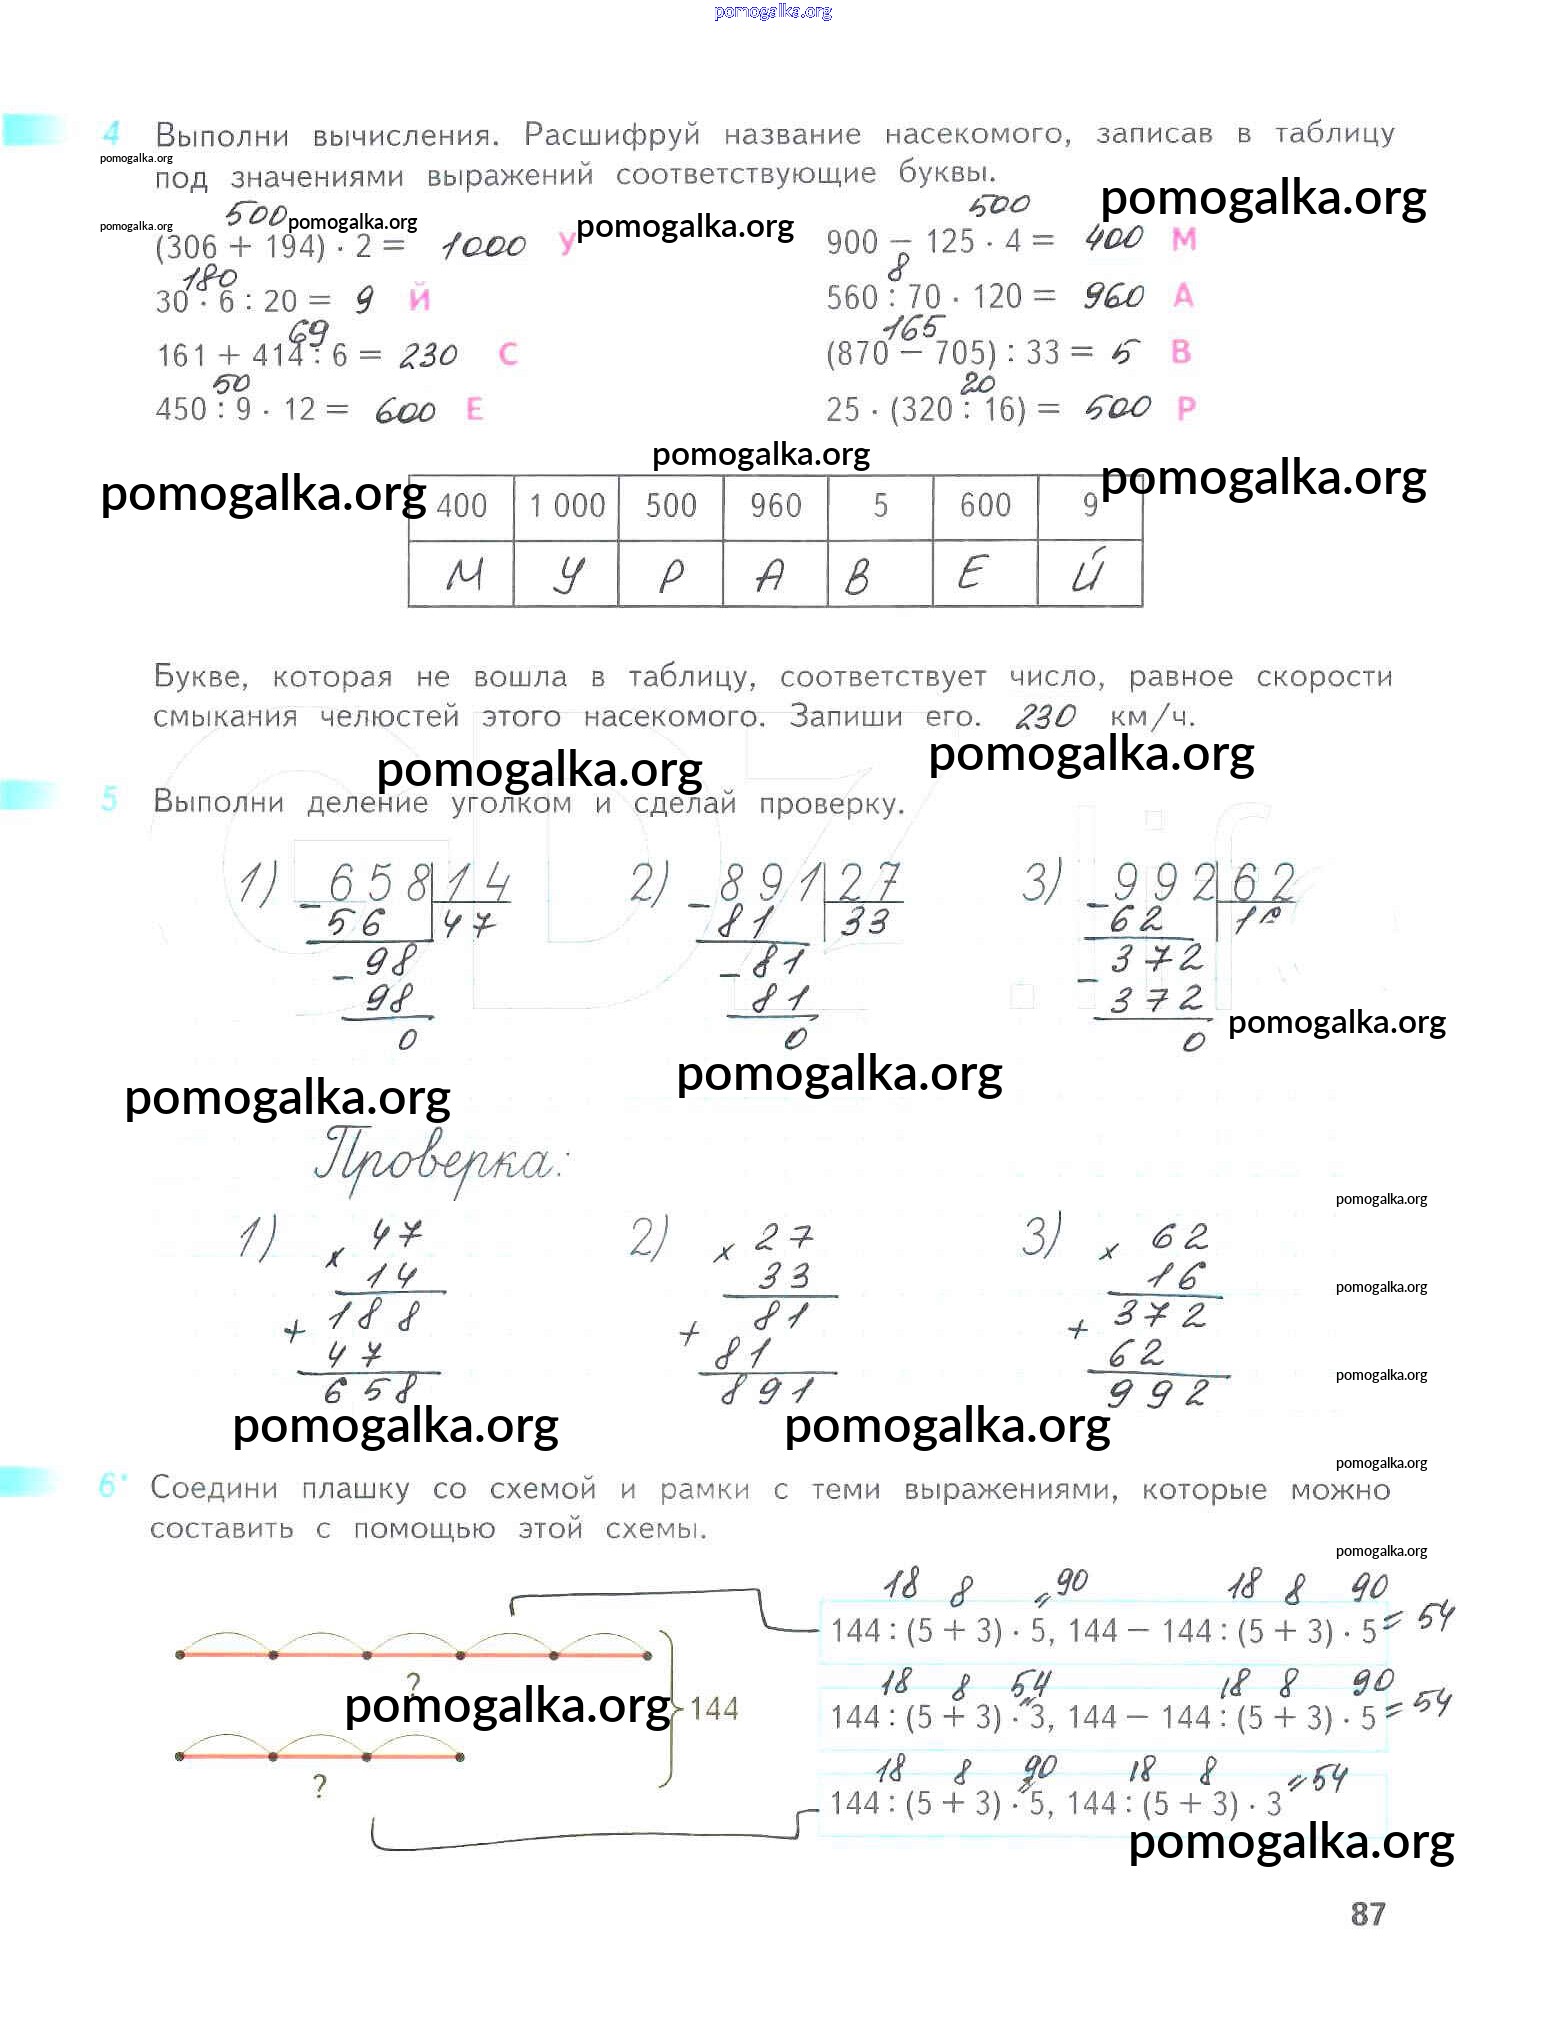 pomogalka.org
4 Выполни вычисления. Расшифруй название насекомого, записав в таблицу
pomogalka.org
под значениями выражений соответствующие буквы.
pomogalka.org
500 pomogalka.org pomogalka.org 500
pomogalka.org
(306 + 194) · 2 = 1000 У
900 − 125 · 4 = 400 М
180
30 · 6 : 20 = 9 Й
8
560 : 70 · 120 = 960 А
69
161 + 414 : 6 = 230 С
165
(870 − 705) : 33 = 5 В
50
450 : 9 · 12 = 600 Е
20
25 · (320 : 16) = 500 Р
pomogalka.org
pomogalka.org pomogalka.org
400 1 000 500 960 5 600 9
М У Р А В Е Й
Букве, которая не вошла в таблицу, соответствует число, равное скорости
смыкания челюстей этого насекомого. Запиши его. 230 км/ч.
pomogalka.org pomogalka.org
5 Выполни деление уголком и сделай проверку.
1) − 658 14 2) − 891 27 3) − 992 62
56 47 81 33 62
− 98 − 81 − 372
98 81 372
0 0 0
pomogalka.org
pomogalka.org
pomogalka.org
Проверка:
pomogalka.org
1) × 47 2) × 27 3) × 62
14 33 16
pomogalka.org
+ 188 + 81 + 372
47 81 62
pomogalka.org
658 891 992
pomogalka.org pomogalka.org
pomogalka.org
6* Соедини плашку со схемой и рамки с теми выражениями, которые можно
составить с помощью этой схемы.
pomogalka.org
18 8 = 90 18 8 90
144 : (5 + 3) · 5, 144 − 144 : (5 + 3) · 5 = 54
?
18 8 54 18 8 90
pomogalka.org
144
144 : (5 + 3) · 3, 144 − 144 : (5 + 3) · 5 = 54
?
18 8 90 18 8
144 : (5 + 3) · 5, 144 : (5 + 3) · 3 = 54
pomogalka.org
87